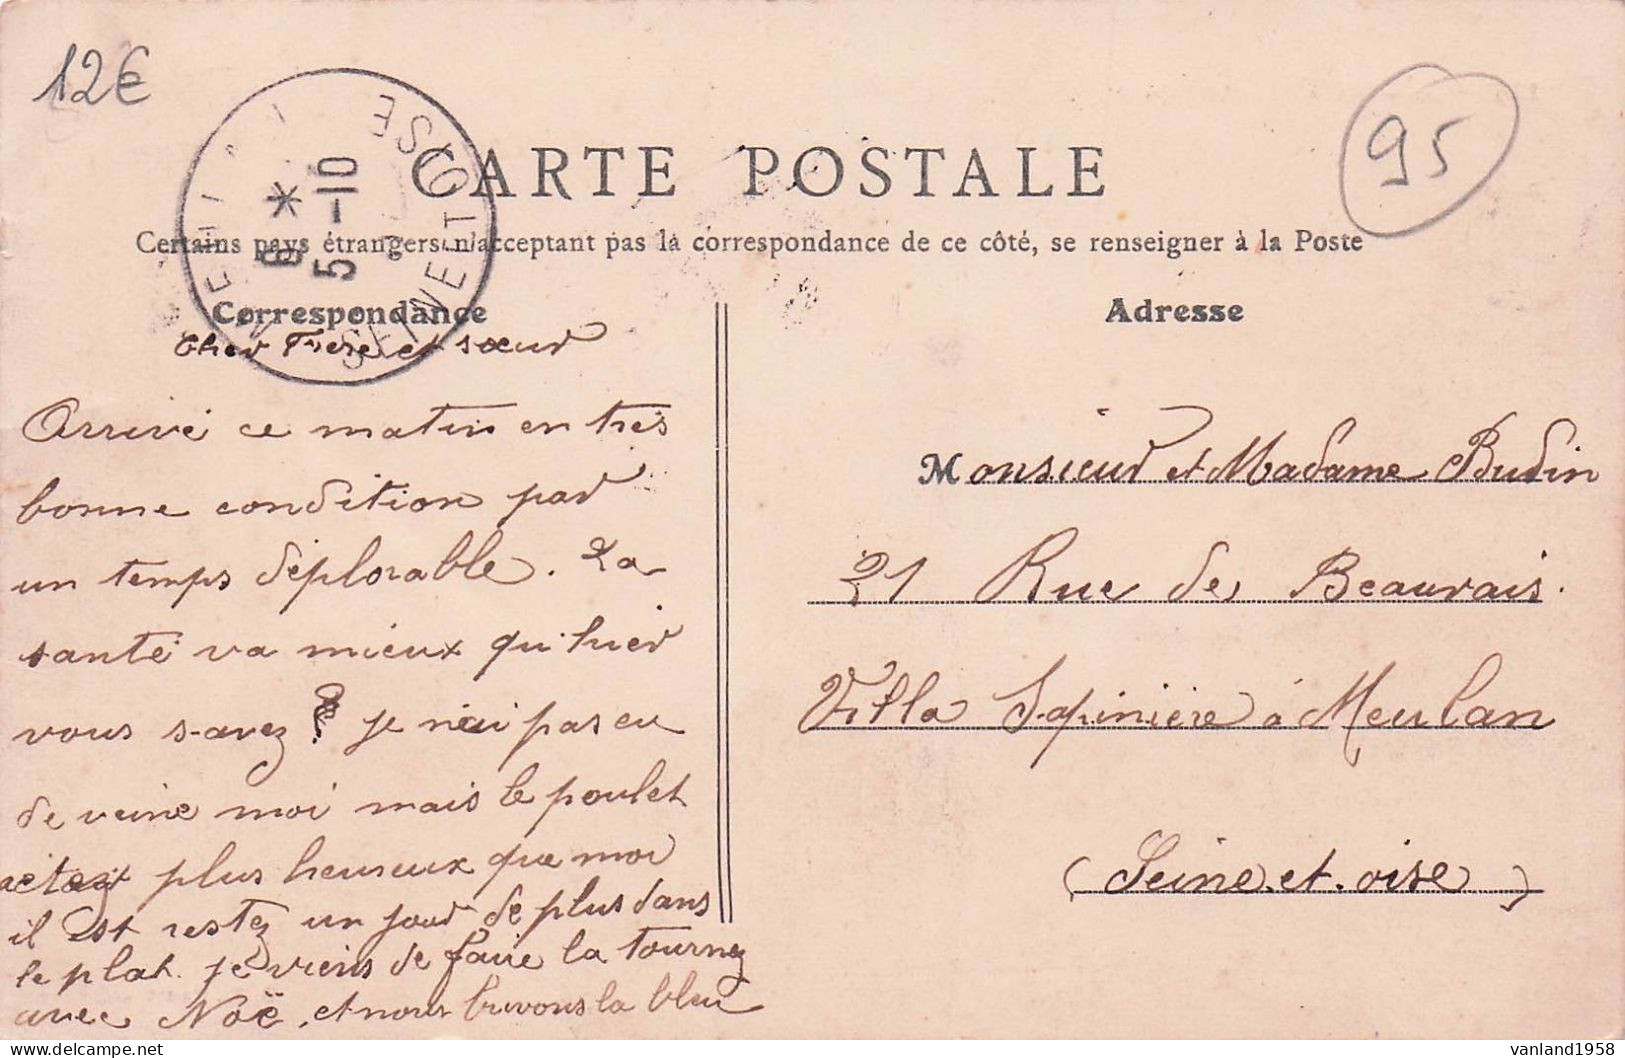 12€
95
CARTE POSTALE
Certains pays étrangers n'acceptent pas la correspondance de ce côté, se renseigner à la Poste
SEINE ET OISE
6 *
5 -10
Correspondance
Cher Frère et sœur
Arrivé ce matin en très
bonne condition par
un temps déplorable. La
santé va mieux qu'hier
vous savez je n'ai pas eu
de veine moi mais le poulet
plus heureux que moi
il est restez un jour de plus dans
le plat. je viens de faire la tournez
avec Noë, et nous buvons la bleu
Adresse
Monsieur et Madame Budin
21 Rue de Beauvais.
Villa Sapinière à Meulan
(Seine-et-oise)
vanland1958